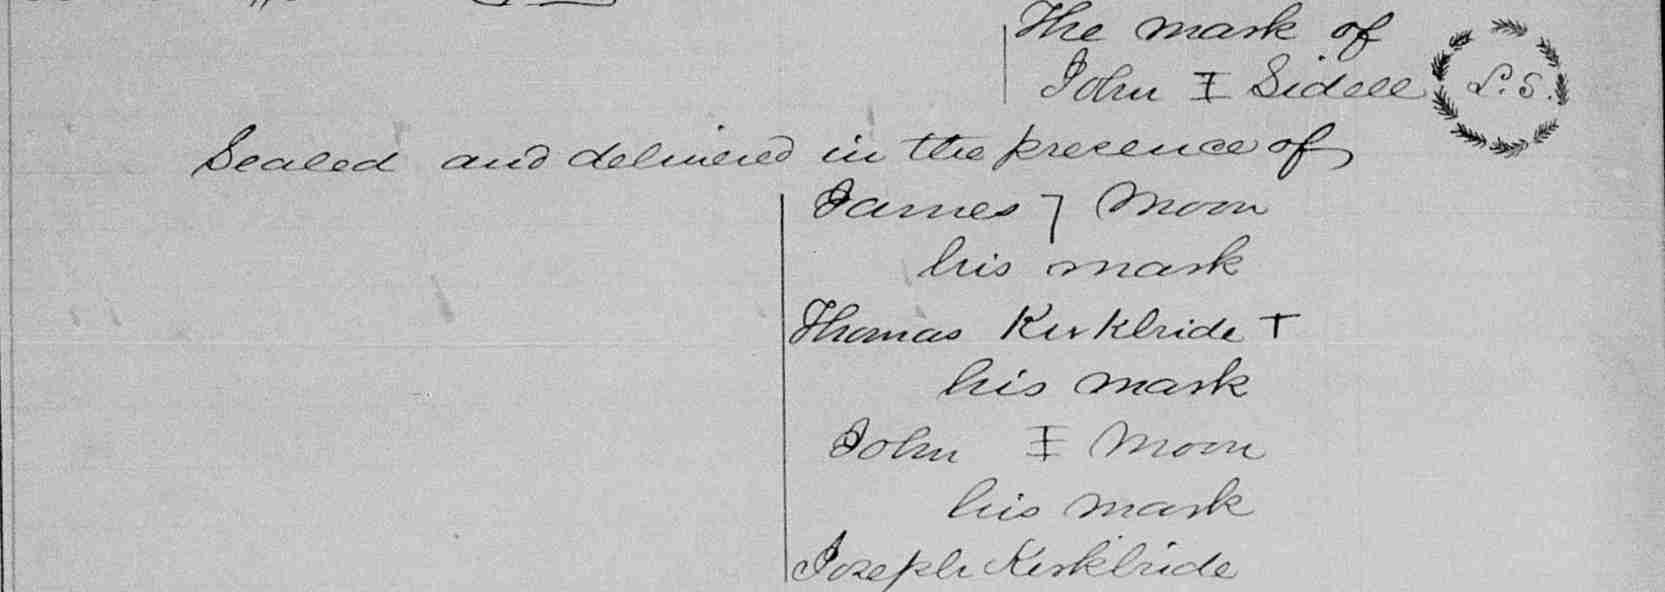 The mark of
John I Sidell L.S.
Sealed and delivered in the presence of
James 7 Moon
his mark
Thomas Kirkbride +
his mark
John I Moon
his mark
Joseph Kirkbride